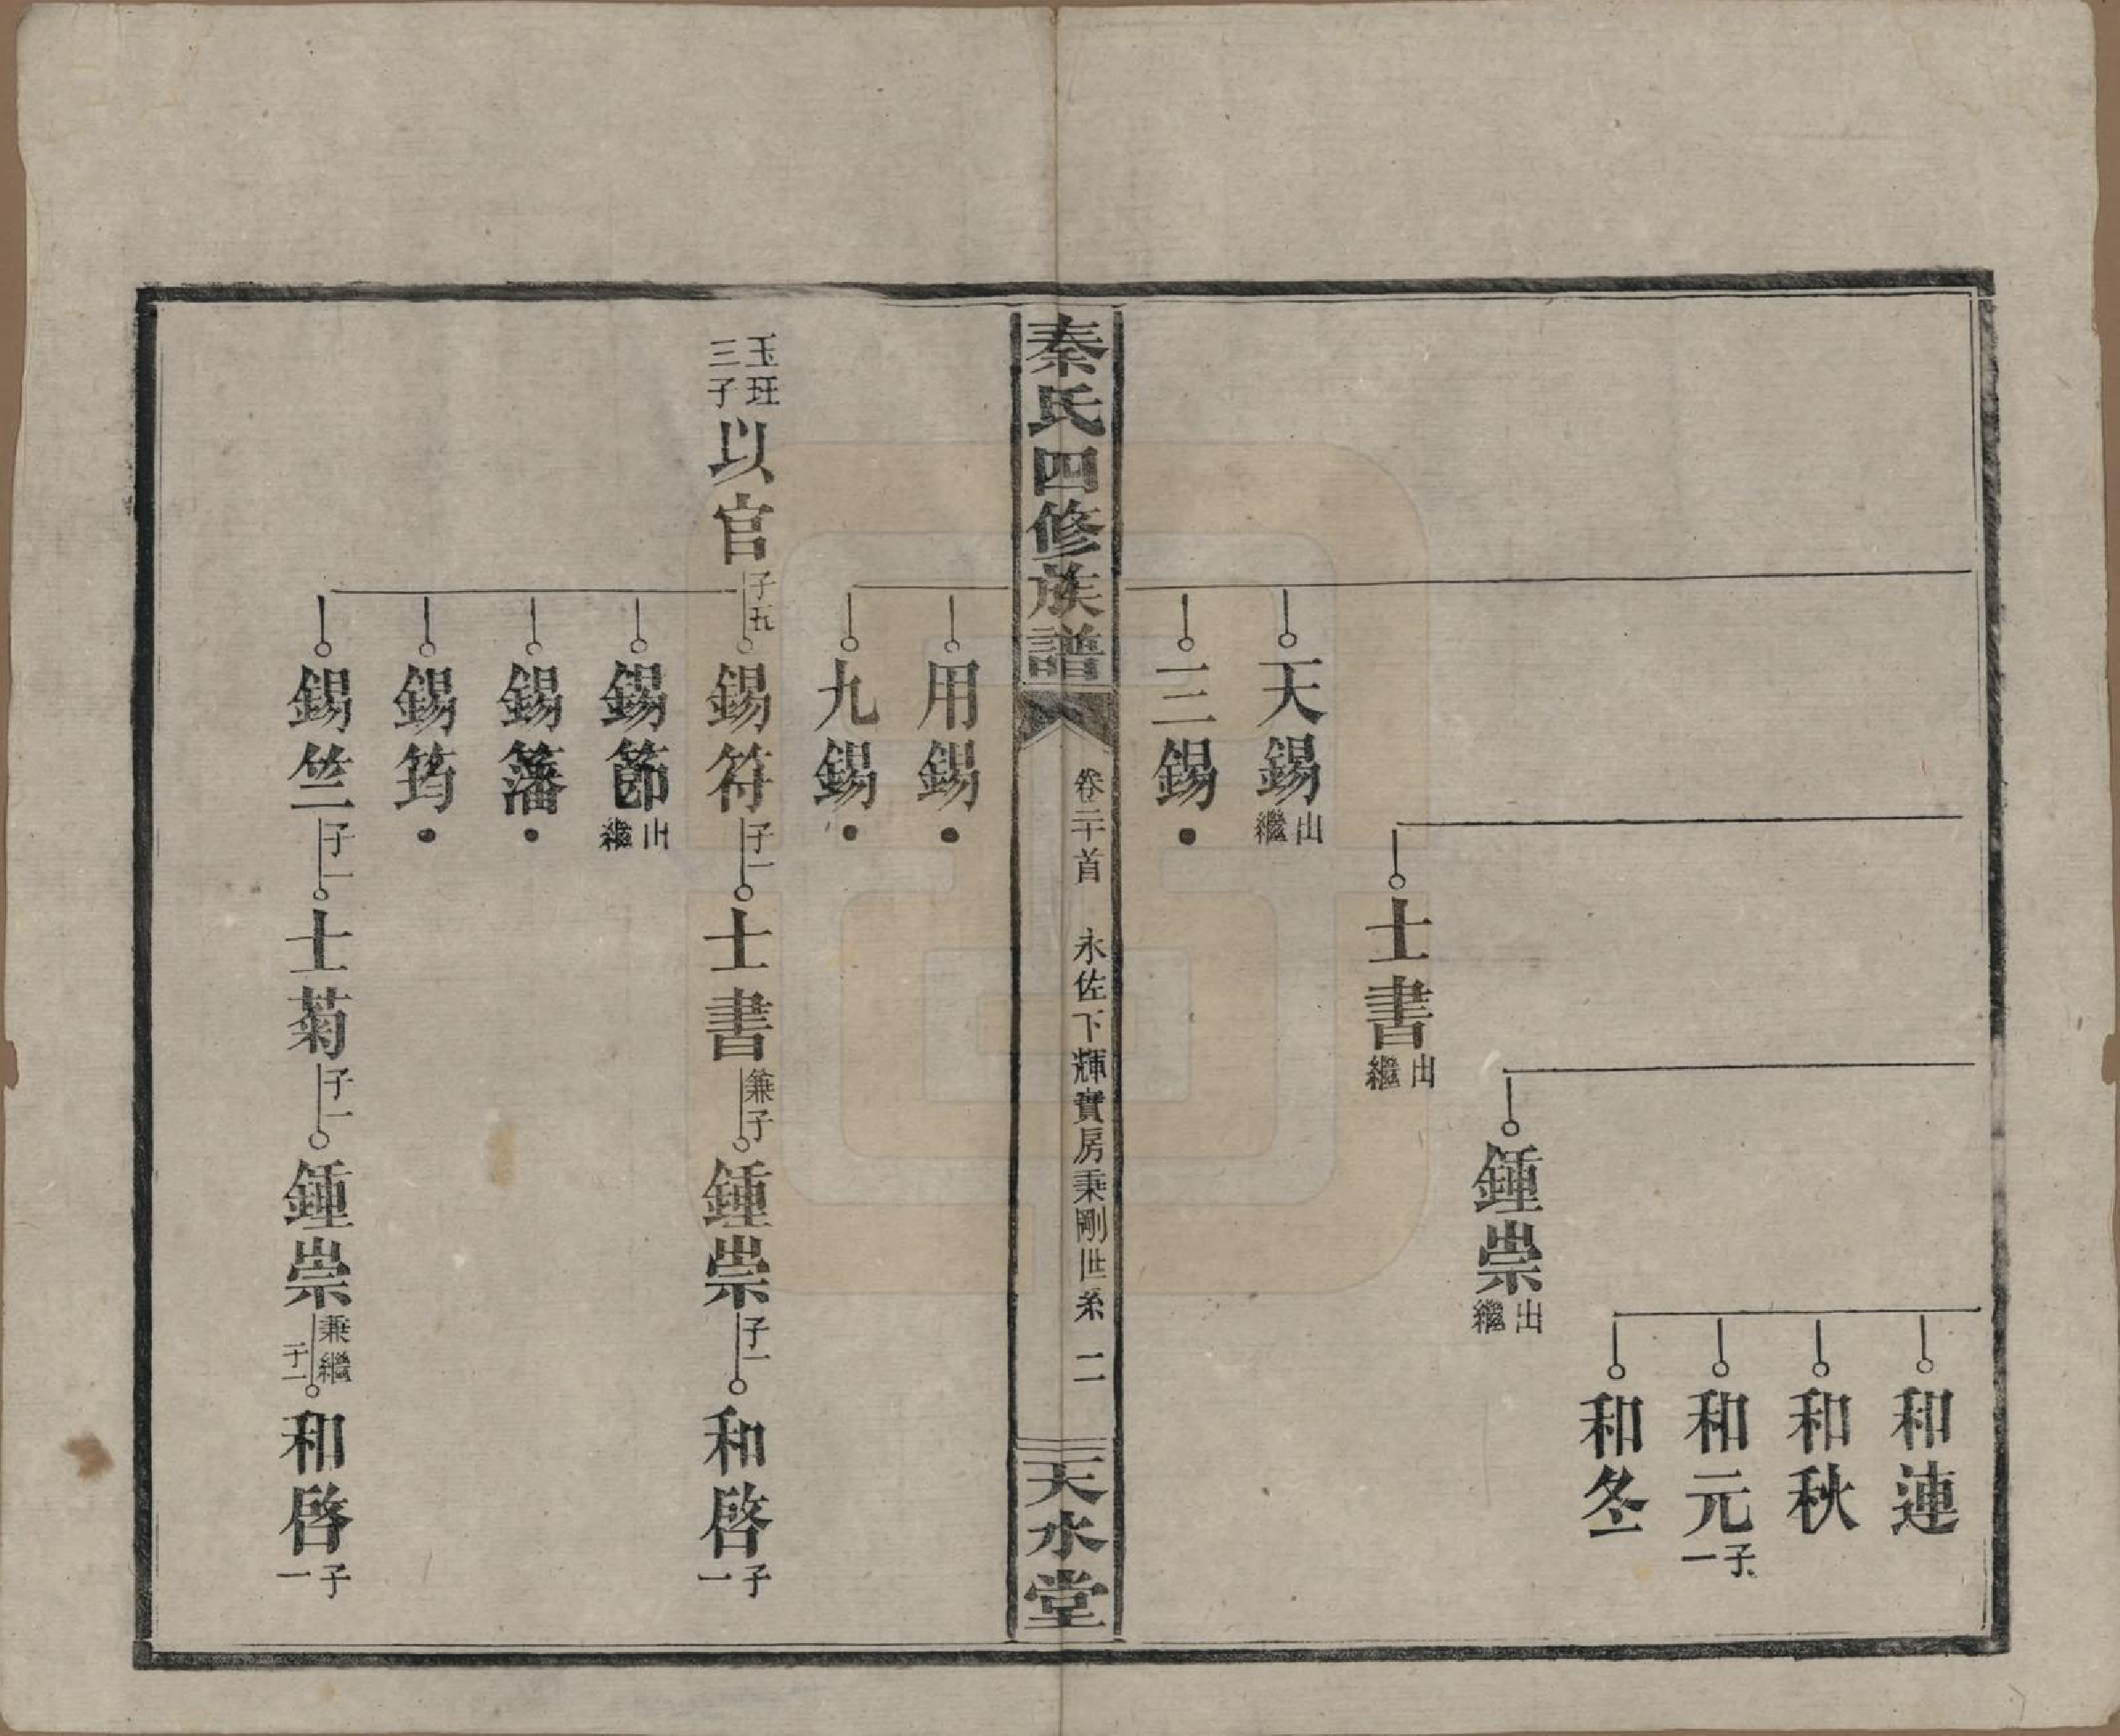 和連
和秋
和元子一
和冬
鍾崇出繼
士書出繼
天錫出繼
三錫
秦氏四修族譜
卷二十首　永佐下輝實房秉剛世系　二
天水堂
用錫
九錫
玉班三子以官子五錫符子一士書兼子鍾崇子一和啓子一
錫節出繼
錫籓
錫筠
錫竺子一士菊子一鍾崇兼繼子一和啓子一